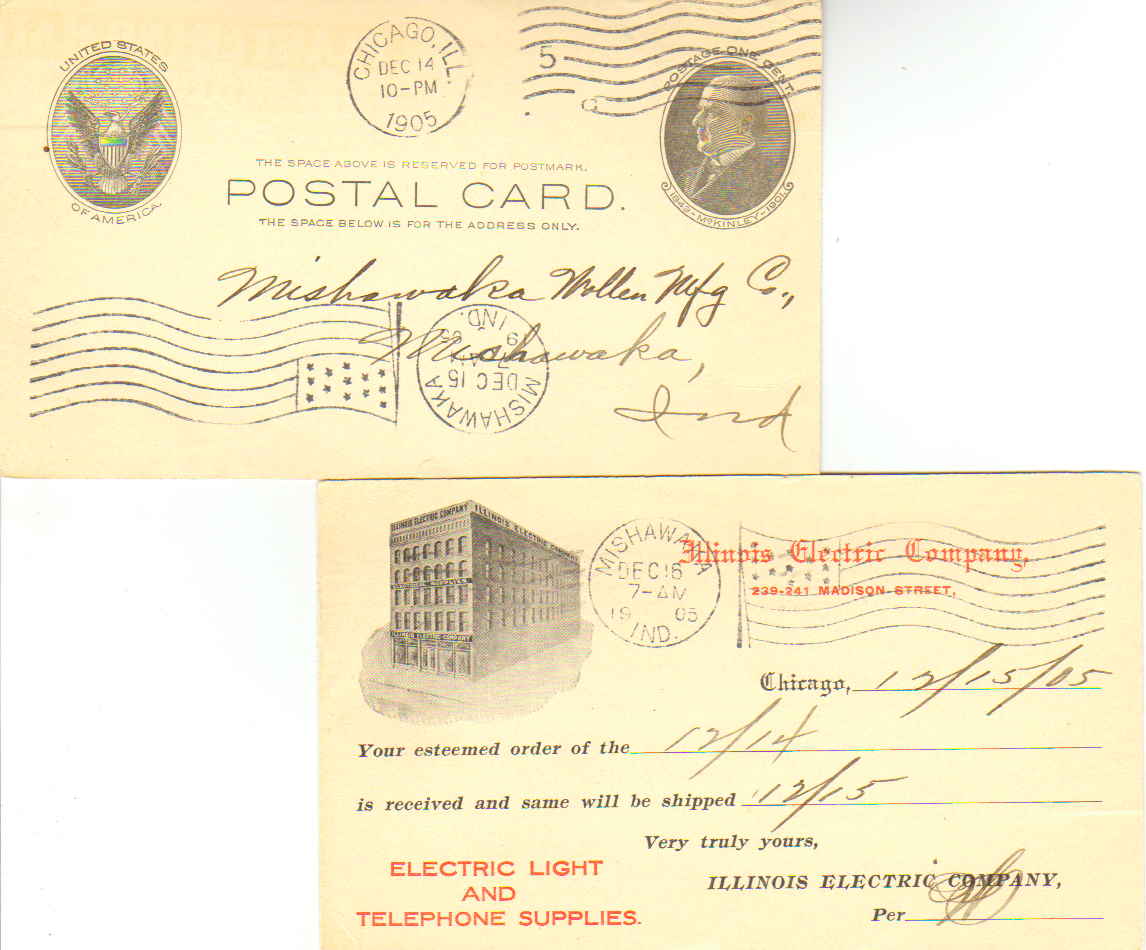 UNITED STATES
OF AMERICA.
CHICAGO, ILL.
DEC 14
10-PM
1905
5
POSTAGE ONE CENT.
1843-McKINLEY-1901.
THE SPACE ABOVE IS RESERVED FOR POSTMARK.
POSTAL CARD.
THE SPACE BELOW IS FOR THE ADDRESS ONLY.
Mishawaka Wollen Mfg Co.,
Mishawaka,
Ind
MISHAWAKA
DEC 15
IND.
ILLINOIS ELECTRIC COMPANY
ILLINOIS ELECTRIC COMPANY
ELECTRICAL SUPPLIES
ILLINOIS ELECTRIC COMPANY
MISHAWAKA
DEC 16
7-AM
19 05
IND.
Illinois Electric Company,
239-241 MADISON STREET,
Chicago, 12/15/05
Your esteemed order of the 12/14
is received and same will be shipped 12/15
Very truly yours,
ILLINOIS ELECTRIC COMPANY,
Per
ELECTRIC LIGHT
AND
TELEPHONE SUPPLIES.